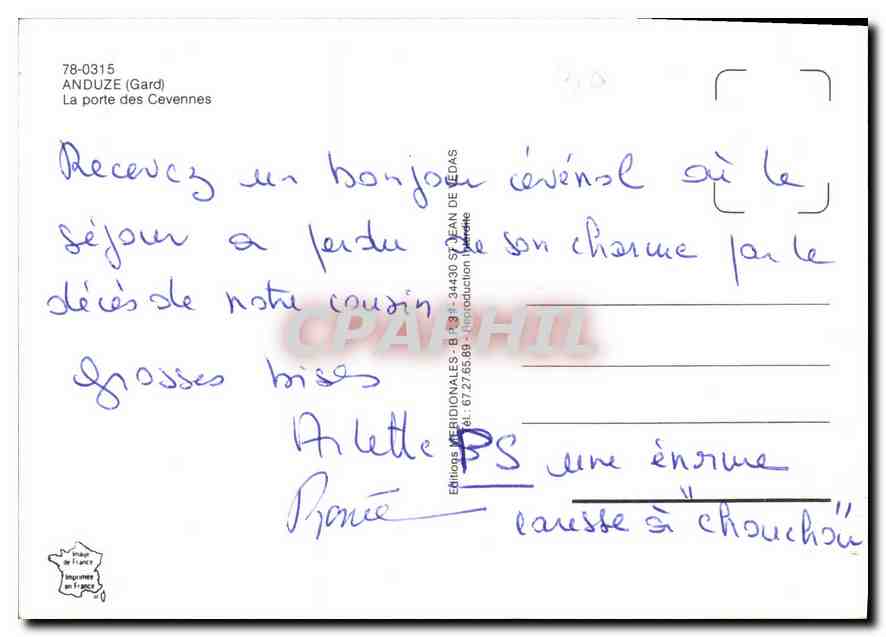 78-0315
ANDUZE (Gard)
La porte des Cevennes
Recevez un bonjour cévénol où le
séjour a perdu de son charme par le
décès de notre cousin
Grosses bises
Arlette
Renée
PS une énorme
caresse à "chouchou"
Editions MERIDIONALES - B.P. 31 - 34430 ST JEAN DE VEDAS
Tél.: 67.27.65.89 - Reproduction Interdite
CPAPHIL
Image
de France
Imprimée
en France